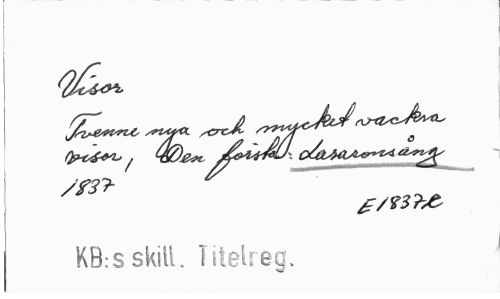 Visor
Tvenne nya och mycket vackra
visor, Den förska: Lazaronsång
1837
E1837c
KB:s skill. Titelreg.